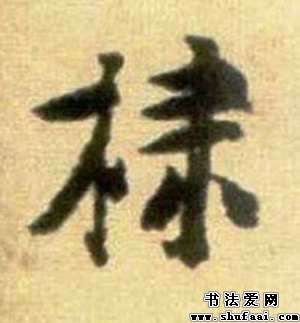 棣
书法爱网
www.shufaai.com